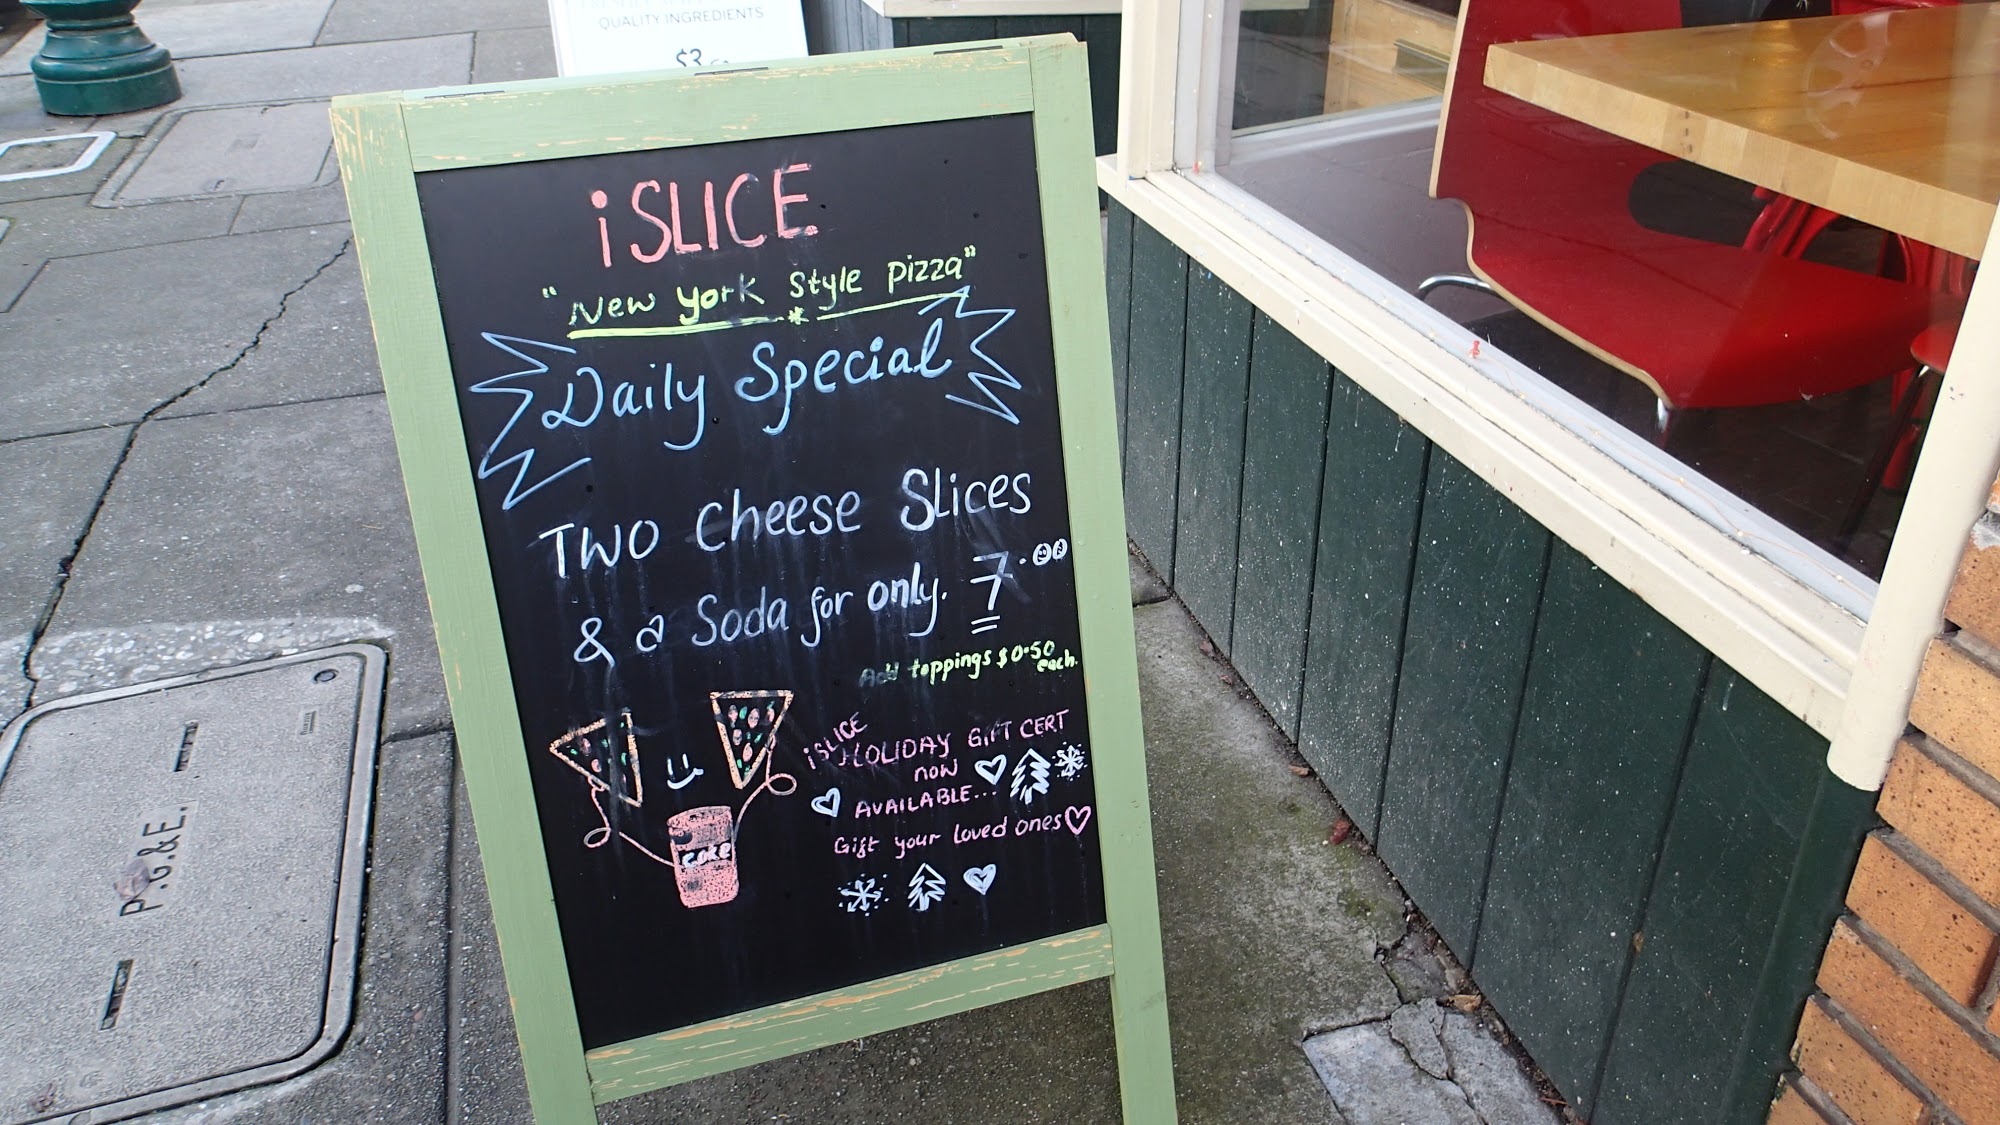 QUALITY INGREDIENTS
iSLICE
"New York Style Pizza"
Daily Special
TWO Cheese Slices
& a Soda for only. 7.00
Add toppings $0.50
each.
iSLICE
HOLIDAY GIFT CERT
now
AVAILABLE...
Gift your loved ones
coke
P.G.&E.